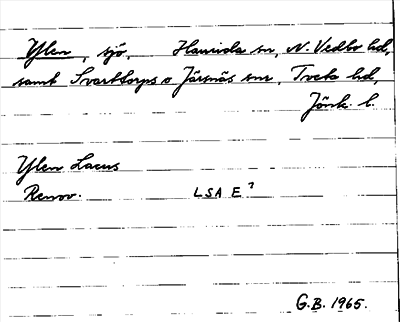 Ylen, sjö, Haurida sn, N. Vedbo hd,
samt Svarttorps o Järsnäs snr, Tveta hd,
Jönk. l.
Ylen Lacus
Renov. LSA E?
G.B. 1965.